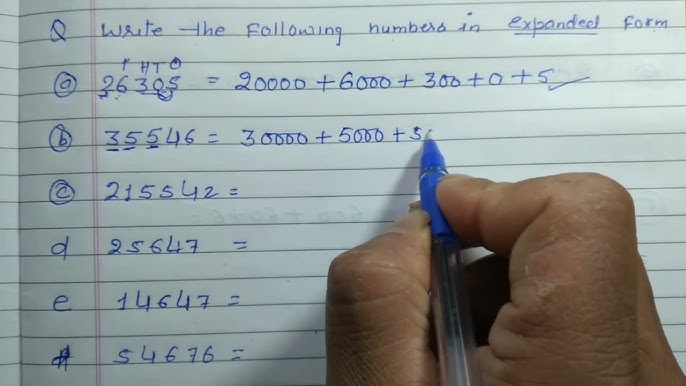 Q Write the following numbers in expanded form
T H T O
a 26305 = 20000 + 6000 + 300 + 0 + 5
b 35546 = 30000 + 5000 + 5
c 215542 =
d 25647 =
e 14647 =
54676 =